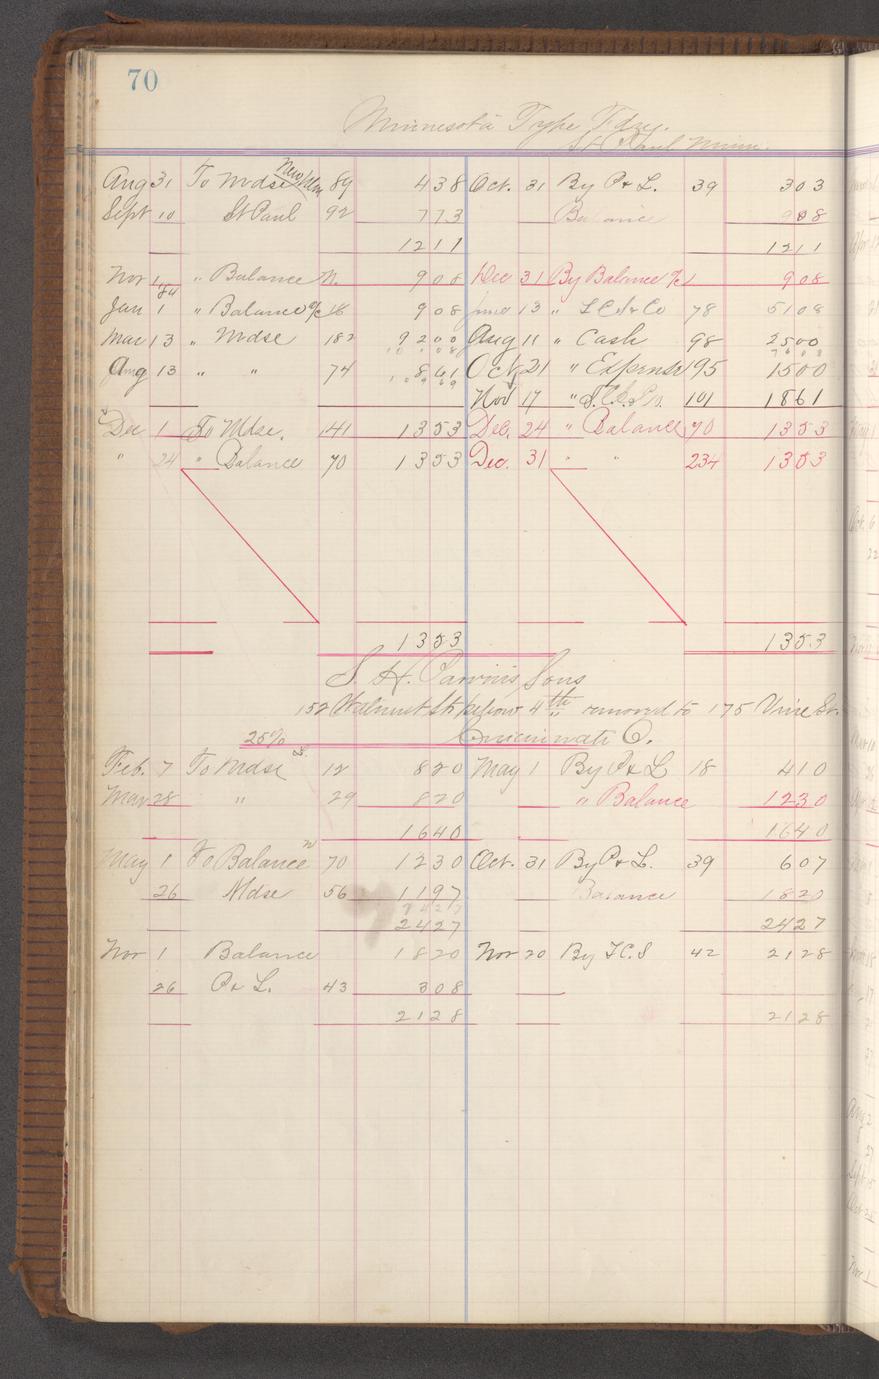 70
Minnesota Type Fdry.
St Paul Minn.
Aug 31 To Mdse 89 438 Oct. 31 By P & L. 39 303
Sept 10 St Paul 92 773 Balance 908
1211 1211
Nov 1 " Balance 908 Dec 31 By Balance 908
84
Jan 1 " Balance 908 13 " 78 5108
Mar 13 " Mdse 182 9200 Aug 11 " Cash 98 2500
Aug 13 " " 74 861 Oct 21 " Expense 195 1500
Nov 17 " 101 1861
Dec 1 To Mdse. 141 1353 Dec. 24 " Balance 70 1353
" 24 " Balance 70 1353 Dec. 31 " " 234 1353
1353 1353
S. H. Parvin's Sons
152 Walnut St below 4th removed to 175 Vine St.
25% Cincinnati O.
Feb. 7 To Mdse 12 820 May 1 By P & L 18 410
Mar 28 " 29 820 " Balance 1230
1640 1640
May 1 To Balance 70 1230 Oct. 31 By P & L. 39 607
26 Mdse 56 1197 Balance 1820
2427 2427
Nov 1 Balance 1820 Nov 20 By 42 2128
26 P & L. 43 308
2128 2128